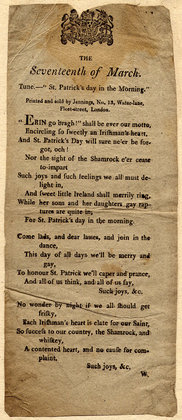 THE
Seventeenth of March.
Tune.—"St. Patrick's day in the Morning."
Printed and sold by Jennings, No. 13, Water-lane,
Fleet-street, London.
"ERIN go bragh!" shall be ever our motto,
Encircling so sweetly an Irishman's heart,
And St. Patrick's Day will sure ne'er be for-
got, och!
Nor the sight of the Shamrock e'er cease
to impart
Such joys and such feelings we all must de-
light in,
And sweet little Ireland shall merrily ring,
While her sons and her daughters gay rap-
tures are quite in;
For St. Patrick's day in the morning.
Come lads, and dear lasses, and join in the
dance,
This day of all days we'll be merry and
gay,
To honour St. Patrick we'll caper and prance,
And all of us think, and all of us say,
Such joys, &c.
No wonder by night if we all should get
frisky,
Each Irishman's heart is elate for our Saint,
So success to our country, the Shamrock, and
whiskey,
A contented heart, and no cause for com-
plaint.
Such joys, &c.
W.